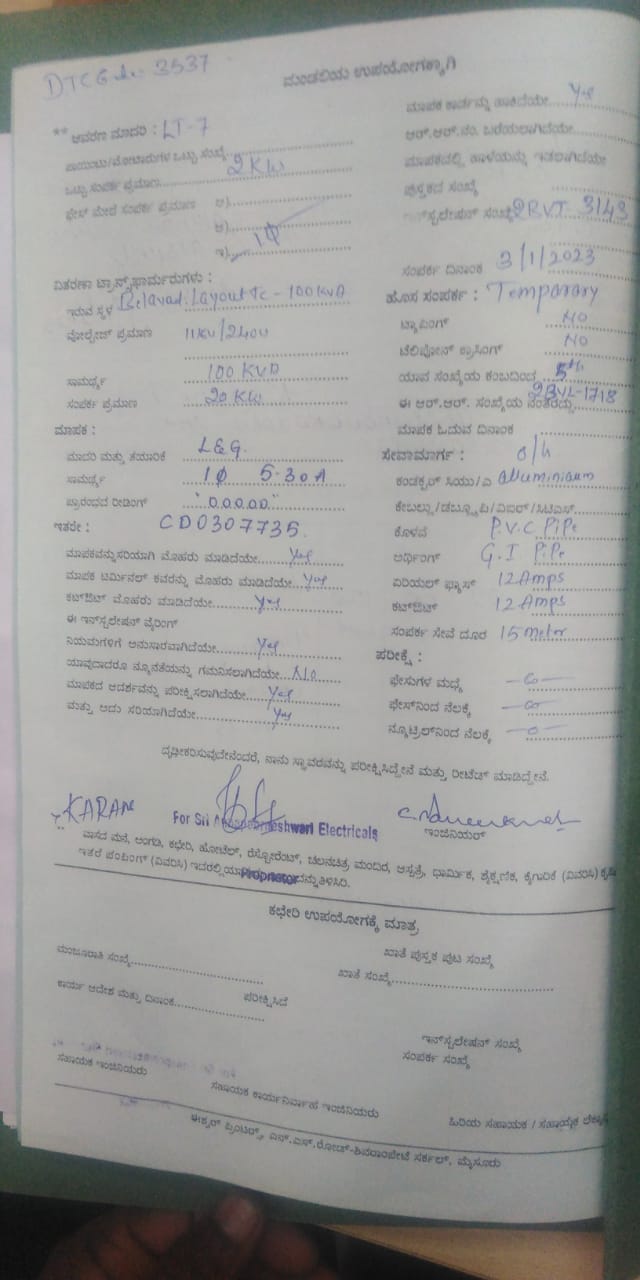 DTC Code: 3537
ಮಂಡಲಿಯ ಉಪಯೋಗಕ್ಕಾಗಿ
** ಆವರಣ ಮಾದರಿ : LT-7
ಪಾಯಿಂಟು/ಮೋಟಾರುಗಳ ಒಟ್ಟು ಸಂಖ್ಯೆ
ಒಟ್ಟು ಸಂಪರ್ಕ ಪ್ರಮಾಣ 2KW
ಫೇಸ್ ಮೇಲೆ ಸಂಪರ್ಕ ಪ್ರಮಾಣ ಅ)
ಆ)
ಇ) 1Φ
ವಿತರಣಾ ಟ್ರಾನ್ಸ್‌ಫಾರ್ಮರುಗಳು :
ಇರುವ ಸ್ಥಳ Belavadi Layout Tc - 100 KVA
ವೋಲ್ಟೇಜ್ ಪ್ರಮಾಣ 11KV/240V
ಸಾಮರ್ಥ್ಯ 100 KVA
ಸಂಪರ್ಕ ಪ್ರಮಾಣ 20 KW
ಮಾಪಕ :
ಮಾದರಿ ಮತ್ತು ತಯಾರಿಕೆ L&G.
ಸಾಮರ್ಥ್ಯ 1Φ 5-30 A
ಪ್ರಾರಂಭದ ರೀಡಿಂಗ್ "00000"
ಇತರೇ : CD0307735
ಮಾಪಕವನ್ನು ಸರಿಯಾಗಿ ಮೊಹರು ಮಾಡಿದೆಯೇ Yes
ಮಾಪಕ ಟರ್ಮಿನಲ್ ಕವರನ್ನು ಮೊಹರು ಮಾಡಿದೆಯೇ Yes
ಕಟ್‌ಔಟ್ ಮೊಹರು ಮಾಡಿದೆಯೇ Yes
ಈ ಇನ್‌ಸ್ಟಲೇಷನ್ ವೈರಿಂಗ್
ನಿಯಮಗಳಿಗೆ ಅನುಸಾರವಾಗಿದೆಯೇ Yes
ಯಾವುದಾದರೂ ನ್ಯೂನತೆಯನ್ನು ಗಮನಿಸಲಾಗಿದೆಯೇ No
ಮಾಪಕದ ಆದರ್ಶವನ್ನು ಪರೀಕ್ಷಿಸಲಾಗಿದೆಯೇ Yes
ಮತ್ತು ಅದು ಸರಿಯಾಗಿದೆಯೇ Yes
ಮಾಪಕ ಕಾರ್ಡನ್ನು ಹಾಕಿದೆಯೇ Yes
ಆರ್.ಆರ್.ನಂ. ಬರೆಯಲಾಗಿದೆಯೇ
ಮಾಪಕದಲ್ಲಿ ಹಾಳೆಯನ್ನು ಇಡಲಾಗಿದೆಯೇ
ಪುಸ್ತಕದ ಸಂಖ್ಯೆ
ಇನ್‌ಸ್ಟಲೇಷನ್ ಸಂಖ್ಯೆ 2BVT 3143
ಸಂಪರ್ಕ ದಿನಾಂಕ 3/1/2023
ಹೊಸ ಸಂಪರ್ಕ : Temporary
ಟ್ಯಾಪಿಂಗ್ NO
ಟೆಲಿಫೋನ್ ಕ್ರಾಸಿಂಗ್ NO
ಯಾವ ಸಂಖ್ಯೆಯ ಕಂಬದಿಂದ 5th
ಈ ಆರ್.ಆರ್. ಸಂಖ್ಯೆಯ ನಂತರದ್ದು 2BVL-1718
ಮಾಪಕ ಓದುವ ದಿನಾಂಕ
ಸೇವಾಮಾರ್ಗ : o/h
ಕಂಡಕ್ಟರ್ ಸಿಯು/ಎ alluminium
ಕೇಬಲ್ಲು/ಡಬ್ಲ್ಯೂಪಿ/ಎಐಆರ್/ಸಿಟಿಎಸ್
ಕೊಳವೆ P.V.C PiPe
ಅರ್ಥಿಂಗ್ G.I PiPe
ಏರಿಯಲ್ ಫ್ಯೂಸ್ 12 Amps
ಕಟ್‌ಔಟ್ 12 Amps
ಸಂಪರ್ಕ ಸೇವೆ ದೂರ 15 Meter
ಪರೀಕ್ಷೆ :
ಫೇಸುಗಳ ಮಧ್ಯೆ
ಫೇಸ್‌ನಿಂದ ನೆಲಕ್ಕೆ
ನ್ಯೂಟ್ರಲ್‌ನಿಂದ ನೆಲಕ್ಕೆ
ದೃಢೀಕರಿಸುವುದೇನೆಂದರೆ, ನಾನು ಸ್ಥಾವರವನ್ನು ಪರೀಕ್ಷಿಸಿದ್ದೇನೆ ಮತ್ತು ರೀಟೆಡ್ ಮಾಡಿದ್ದೇನೆ.
KARAN
For Sri Annapoorneshwari Electricals
ಇಂಜಿನಿಯರ್
ವಾಸದ ಮನೆ, ಅಂಗಡಿ, ಕಛೇರಿ, ಹೋಟೆಲ್, ರೆಸ್ಟೋರೆಂಟ್, ಚಲನಚಿತ್ರ ಮಂದಿರ, ಆಸ್ಪತ್ರೆ, ಧಾರ್ಮಿಕ, ಶೈಕ್ಷಣಿಕ, ಕೈಗಾರಿಕೆ (ವಿವರಿಸಿ) ಕೃಷಿ
ಇತರೆ ಪಂಪಿಂಗ್ (ವಿವರಿಸಿ) ತಿಳಿಸಿರಿ.
Proprietor
ಕಛೇರಿ ಉಪಯೋಗಕ್ಕೆ ಮಾತ್ರ
ಮಂಜೂರಾತಿ ಸಂಖ್ಯೆ
ಖಾತೆ ಪುಸ್ತಕ ಪುಟ ಸಂಖ್ಯೆ
ಖಾತೆ ಸಂಖ್ಯೆ
ಕಾರ್ಯ ಆದೇಶ ಮತ್ತು ದಿನಾಂಕ
ಪರೀಕ್ಷಿಸಿದೆ
ಇನ್‌ಸ್ಟಲೇಷನ್ ಸಂಖ್ಯೆ
ಸಂಪರ್ಕ ಸಂಖ್ಯೆ
ಸಹಾಯಕ ಇಂಜಿನಿಯರು
ಸಹಾಯಕ ಕಾರ್ಯನಿರ್ವಾಹ ಇಂಜಿನಿಯರು
ಹಿರಿಯ ಸಹಾಯಕ / ಸಹಾಯಕ
ಈಶ್ವರ್ ಪ್ರಿಂಟರ್ಸ್, ಎನ್.ಎಸ್.ರೋಡ್-ಶಿವರಾಂಪೇಟೆ ಸರ್ಕಲ್, ಮೈಸೂರು